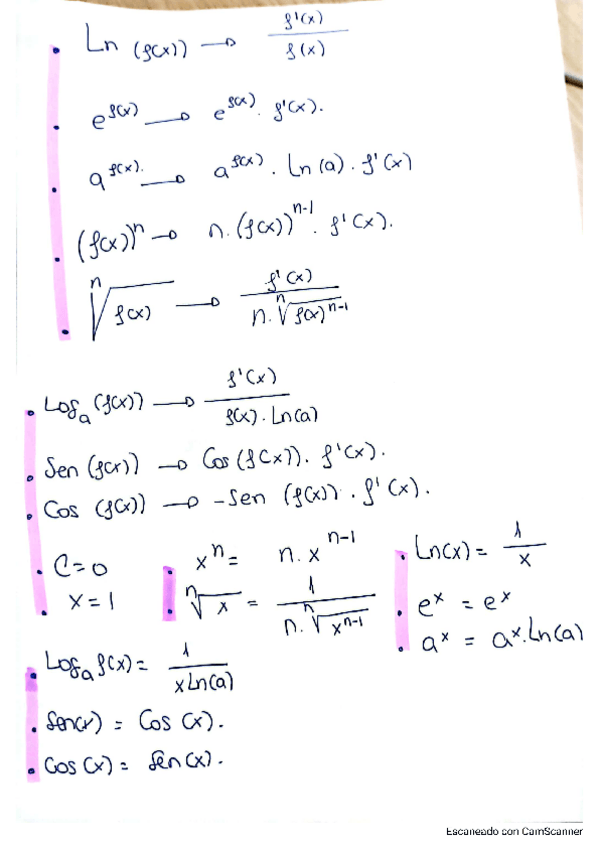 · Ln (f(x)) → f'(x) / f(x)
· e^f(x) → e^f(x) · f'(x).
· a^f(x). → a^f(x) · Ln(a) · f'(x)
· (f(x))^n → n · (f(x))^n-1 · f'(x).
· ⁿ√f(x) → f'(x) / n · ⁿ√f(x)^n-1
· Log_a (f(x)) → f'(x) / f(x) · Ln(a)
· Sen (f(x)) → Cos (f(x)) · f'(x).
· Cos (f(x)) → -Sen (f(x)) · f'(x).
· C=0
· x=1
x^n = n · x^n-1
· ⁿ√x = 1 / n · ⁿ√x^n-1
· Ln(x) = 1 / x
· e^x = e^x
· a^x = a^x · Ln(a)
· Log_a f(x) = 1 / x Ln(a)
· Sen(x) = Cos (x).
· Cos (x) = Sen (x).
Escaneado con CamScanner